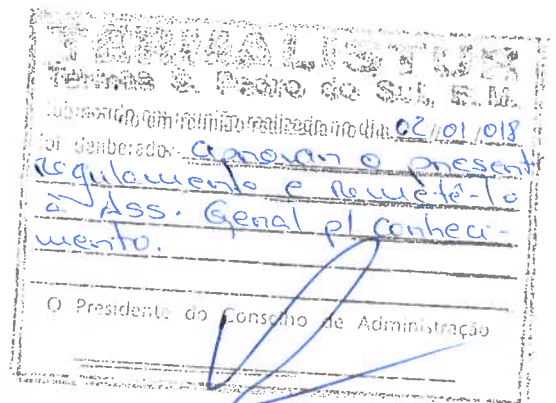 TERMALISTUR
Termas S. Pedro do Sul, E.M.
Submetido em reunião realizada no dia 02/01/018
foi deliberado: aprovar o present
regulamento e remetê-lo
à Ass. Geral p/ conheci-
mento.
O Presidente do Conselho de Administração